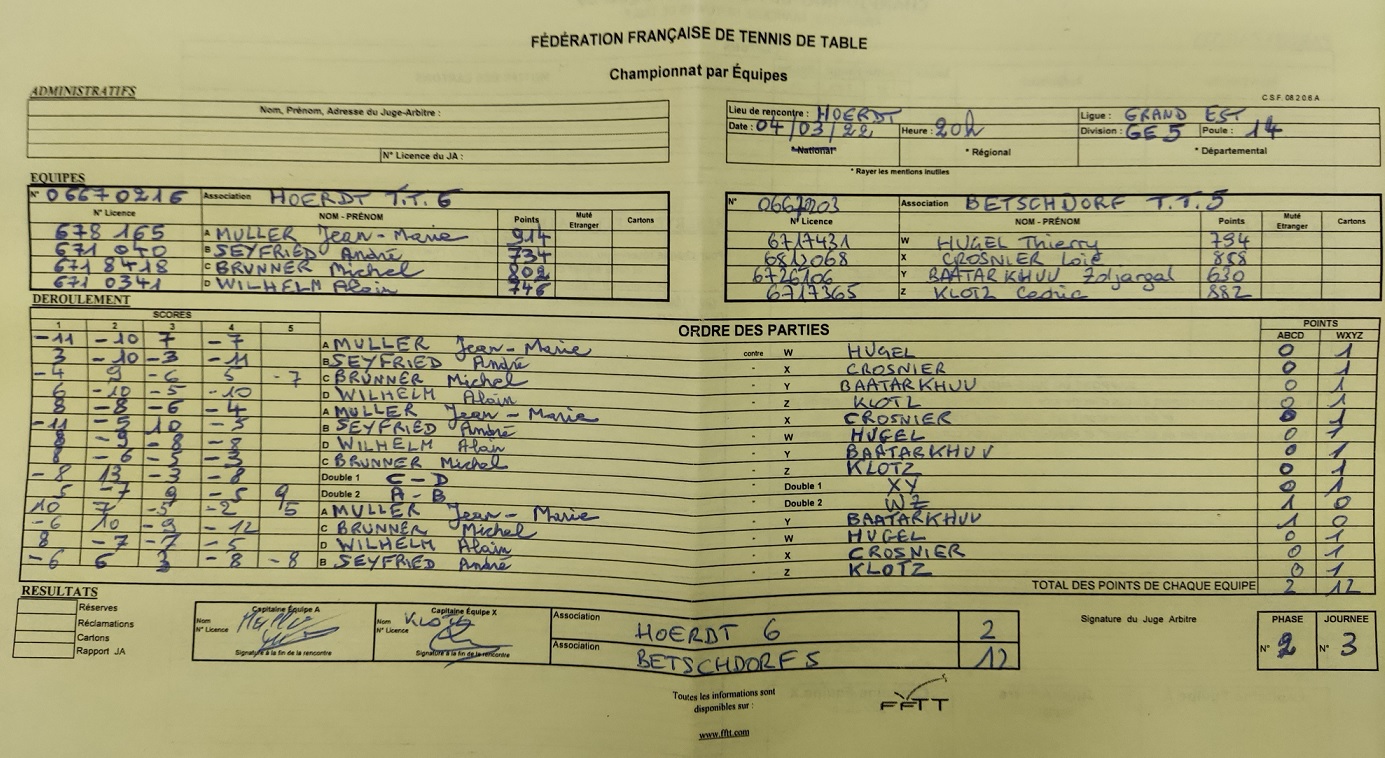 FÉDÉRATION FRANÇAISE DE TENNIS DE TABLE
Championnat par Équipes
ADMINISTRATIFS
C.S.F. 08 2 0 6 A
Nom, Prénom, Adresse du Juge-Arbitre :
N° Licence du JA :
Lieu de rencontre : HOERDT Ligue : GRAND EST
Date : 04/03/22 Heure : 20h Division : GE 5 Poule : 14
* National* * Régional * Départemental
* Rayer les mentions inutiles
EQUIPES
N° 06670216 Association HOERDT T.T. 6
N° Licence NOM - PRÉNOM Points Muté Etranger Cartons
678 165 A MULLER Jean-Marie 914
671 040 B SEYFRIED André 734
671 8418 C BRUNNER Michel 802
671 0341 D WILHELM Alain 746
N° Association BETSCHDORF T.T. 5
N° Licence NOM - PRÉNOM Points Muté Etranger Cartons
6717431 W HUGEL Thierry 794
6812068 X CROSNIER Loïc 858
6726106 Y BAATARKHUU Zoljargal 630
6717365 Z KLOTZ Cédric 882
DEROULEMENT
SCORES ORDRE DES PARTIES POINTS
1 2 3 4 5 ABCD WXYZ
-11 -10 7 -7 A MULLER Jean-Marie contre W HUGEL 0 1
3 -10 -3 -11 B SEYFRIED André - X CROSNIER 0 1
-4 9 -6 5 -7 C BRUNNER Michel - Y BAATARKHUU 0 1
6 -10 -5 -10 D WILHELM Alain - Z KLOTZ 0 1
8 -8 -6 -4 A MULLER Jean-Marie - X CROSNIER 0 1
-11 -5 10 -5 B SEYFRIED André - W HUGEL 0 1
8 -9 -8 -8 D WILHELM Alain - Y BAATARKHUU 0 1
8 -6 -5 -3 C BRUNNER Michel - Z KLOTZ 0 1
-8 13 -3 -8 Double 1 C-D - Double 1 XY 0 1
5 -7 9 -5 9 Double 2 A-B - Double 2 WZ 1 0
10 7 -5 -2 5 A MULLER Jean-Marie - Y BAATARKHUU 1 0
-6 10 -9 -12 C BRUNNER Michel - W HUGEL 0 1
8 -7 -7 -5 D WILHELM Alain - X CROSNIER 0 1
-6 6 3 -8 -8 B SEYFRIED André - Z KLOTZ 0 1
TOTAL DES POINTS DE CHAQUE EQUIPE 2 12
RESULTATS
Réserves
Réclamations
Cartons
Rapport JA
Capitaine Équipe A
Nom
N° Licence
Signature à la fin de la rencontre
Capitaine Équipe X
Nom KLOTZ
N° Licence
Signature à la fin de la rencontre
Association HOERDT 6 2
Association BETSCHDORF 5 12
Signature du Juge Arbitre
PHASE JOURNEE
N° 2 N° 3
Toutes les informations sont
disponibles sur :
www.fftt.com
FFTT